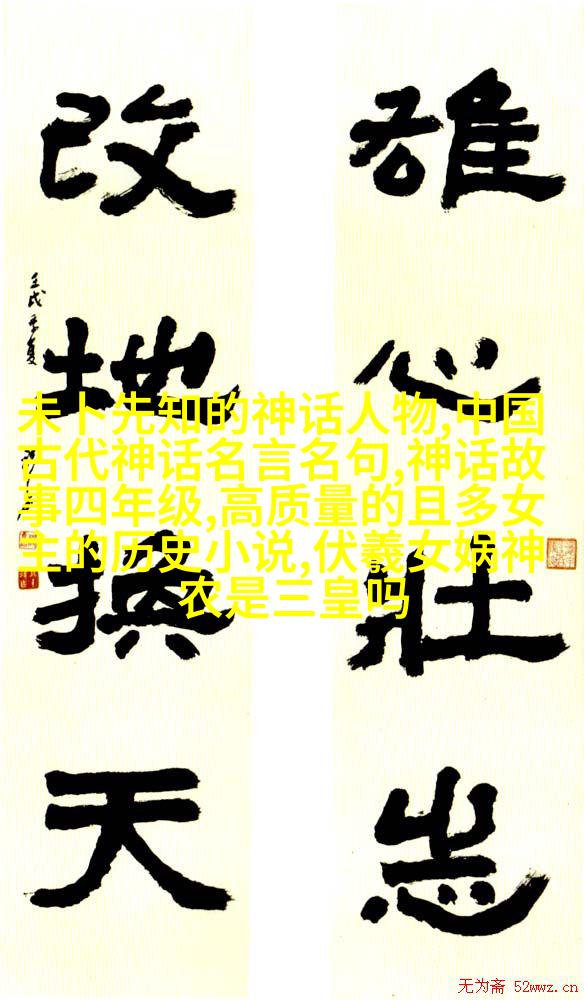 雄心壮志
改地换天
壬戌孟夏
未卜先知的神话人物,中国
古代神话名言名句,神话故
事四年级,高质量的且多女
主的历史小说,伏羲女娲神
农是三皇吗
无为斋 52wwz.cn